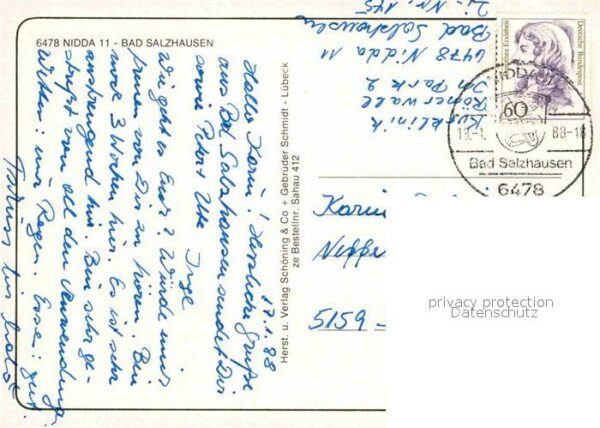 6478 NIDDA 11 - BAD SALZHAUSEN
17.1.88
Hallo Karin! Herzliche Grüße
aus Bad Salzhausen sendet Dir
sowie Peter + Ute
Inge
wie geht es Euch? Würde mich
freuen von Dir zu hören. Bin
noch 3 Wochen hier. Es ist sehr
anstrengend hier. Bin sehr ge-
streßt von all den Anwendung.
Wetter: nur Regen. Essen: gut.
Tschüss bis bald
Herst. u. Verlag Schöning & Co + Gebrüder Schmidt - Lübeck
ze Bestellnr. Sahau 412
Kurklinik
Römerwall
Im Park 2
6478 Nidda 11
Bad Salzhausen
Zi-Nr. 145
Deutsche Bundespost
60
NIDDA
88-18
Bad Salzhausen
6478
Karin
5159 -
privacy protection
Datenschutz